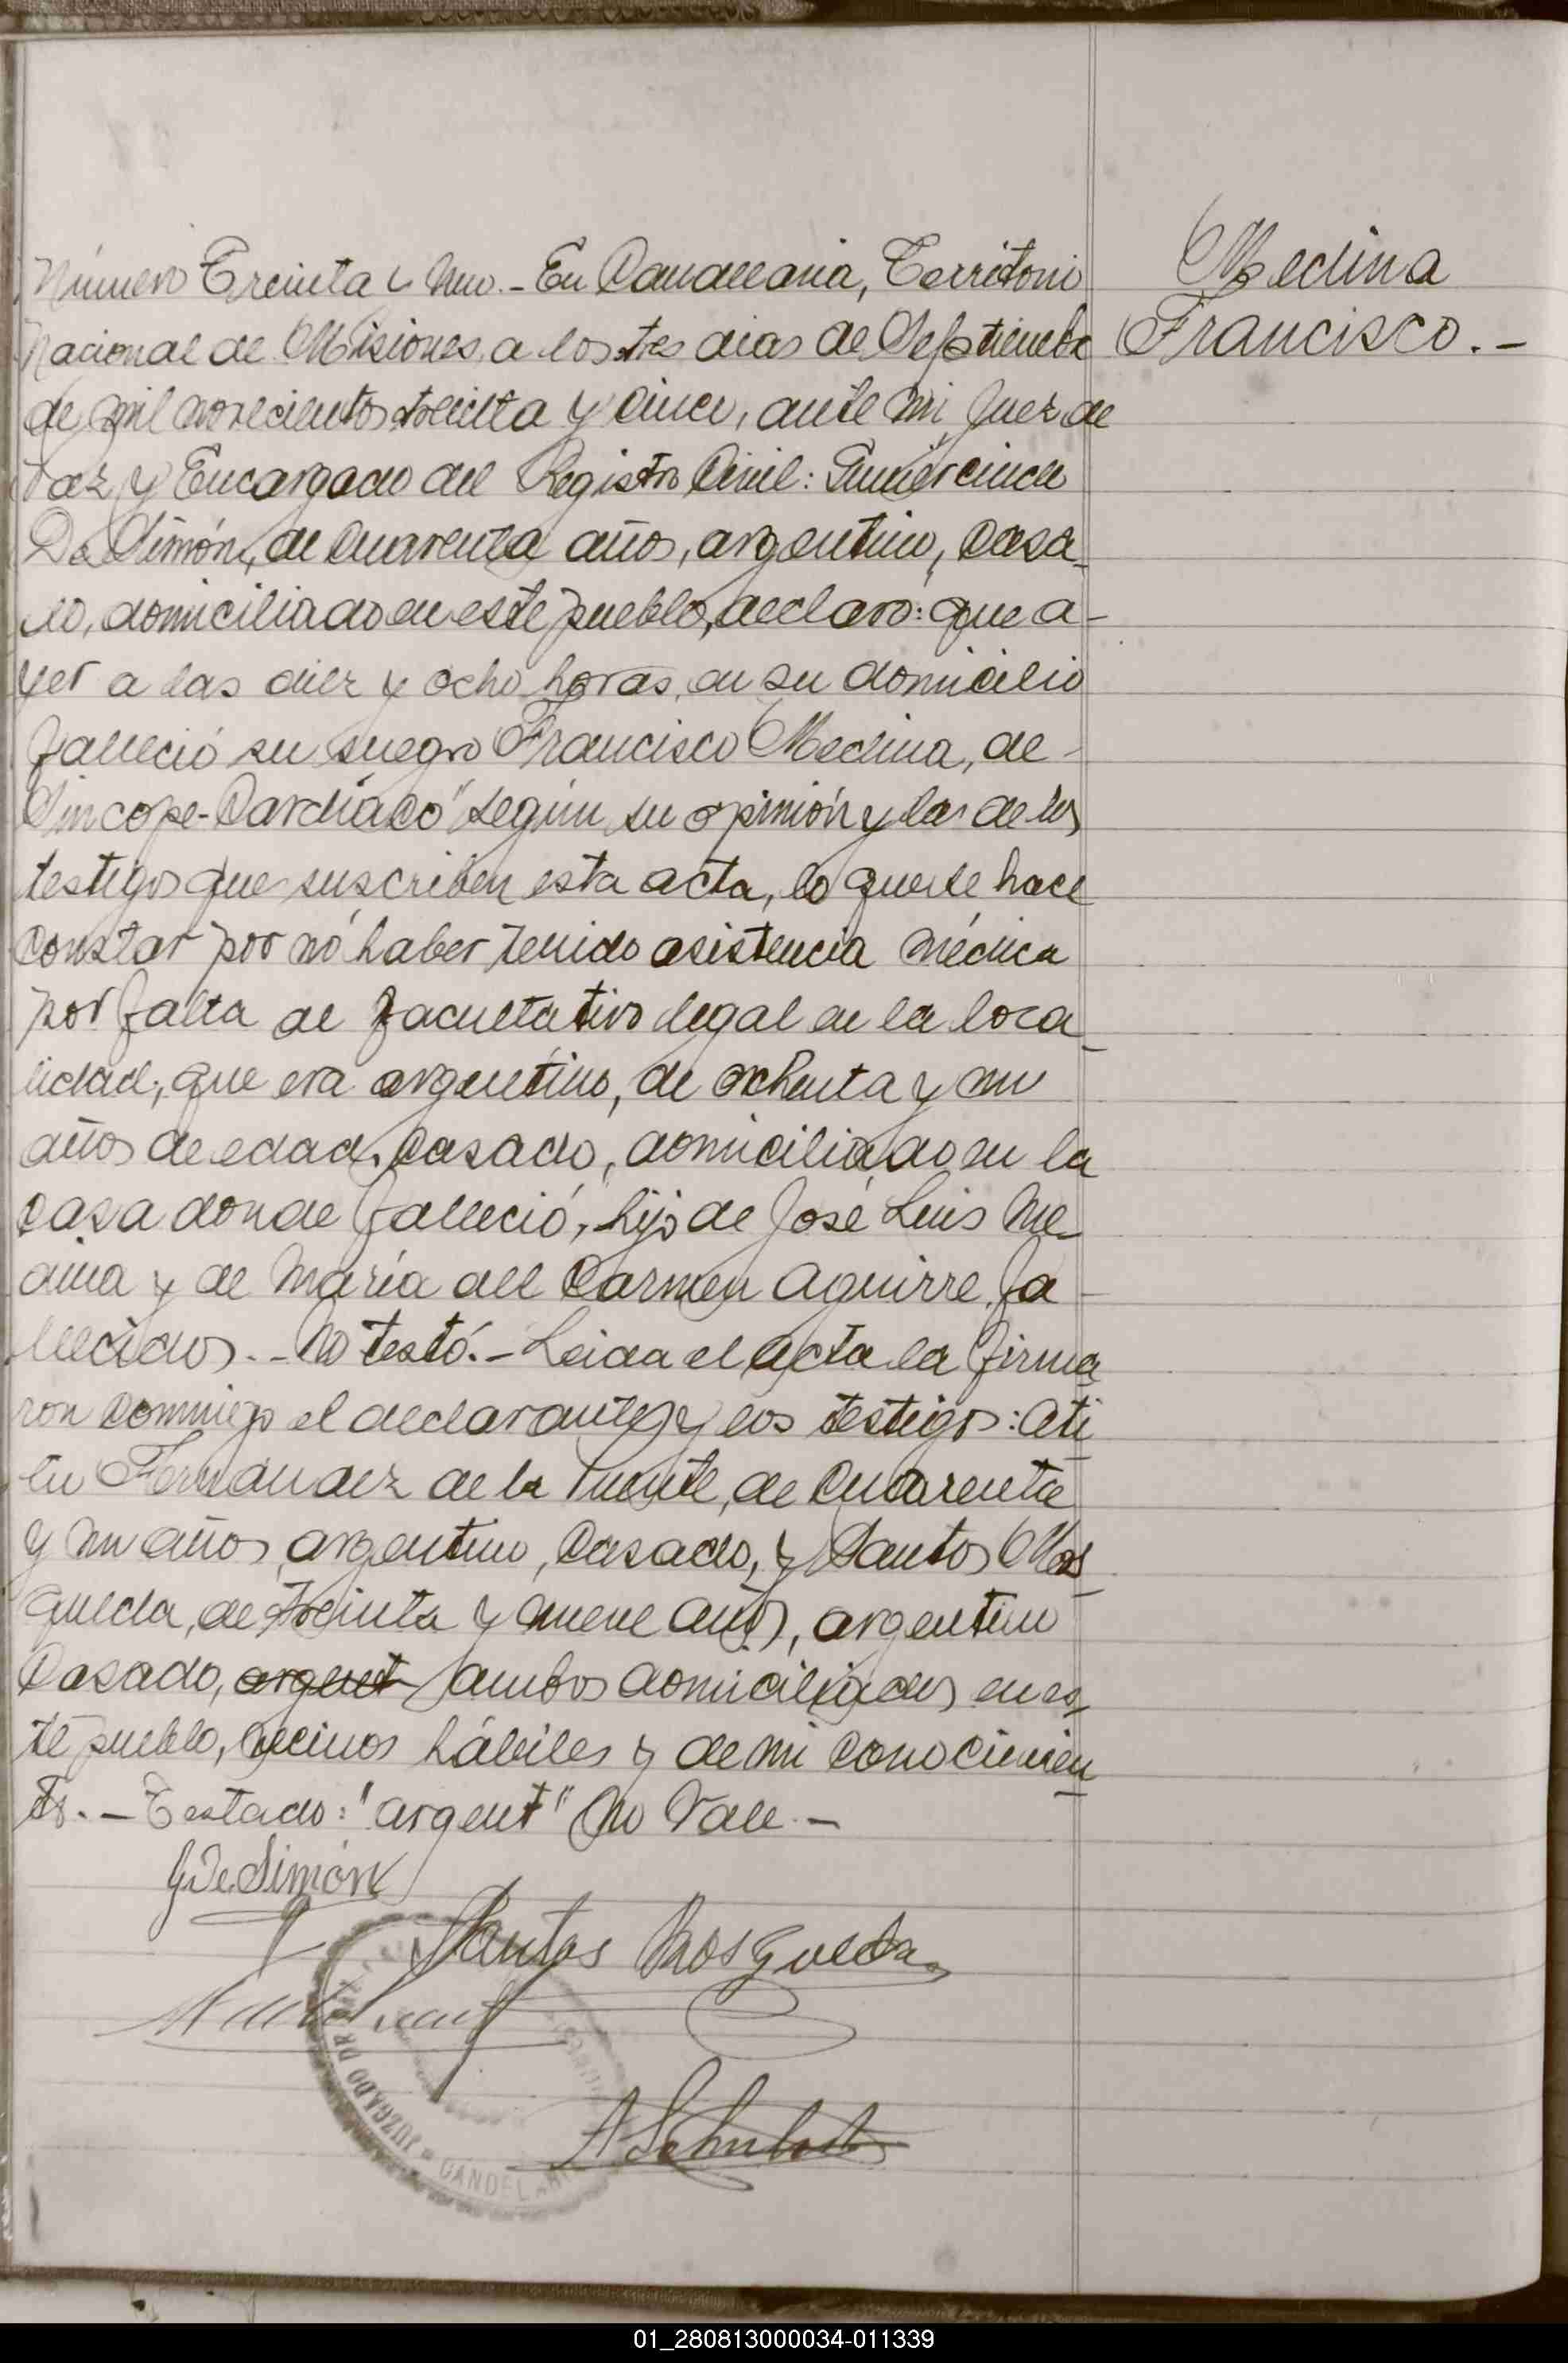 Número Treinta y Uno.- En Candelaria, Territorio
Nacional de Misiones, a los tres dias de Septiembre
de mil novecientos treinta y cinco, ante mi, Juez de
Paz y Encargado del Registro Civil: Gumercindo
De Simón, de cuarenta años, argentino, casa-
do, domiciliado en este pueblo, declaró: que a-
yer a las diez y ocho horas, en su domicilio
falleció su suegro Francisco Medina, de
"Sincope-Cardíaco" según su opinión y las de los
testigos que suscriben esta acta, lo que se hace
constar por nó haber tenido asistencia médica
por falta de facultativo legal en la loca-
lidad, que era argentino, de ochenta y un
años de edad, casado, domiciliado en la
casa donde falleció, hijo de José Luis Me-
dina y de María del Carmen Aguirre, fa-
llecidos.- No testó.- Leida el acta la firma
ron conmigo el declarante y los testigos: Ati
lio Fernandez de la Puente, de cuarenta
y un años, argentino, casado, y Santos Mos-
queda, de treinta y nueve años, argentino
casado, argent ambos domiciliados en es-
te pueblo, vecinos hábiles y de mi conocimien-
to.- Testado: "argent" No Vale.-
Medina
Francisco.-
G De Simón
Santos Mosqueda
JUZGADO DE
CANDEL
01_280813000034-011339